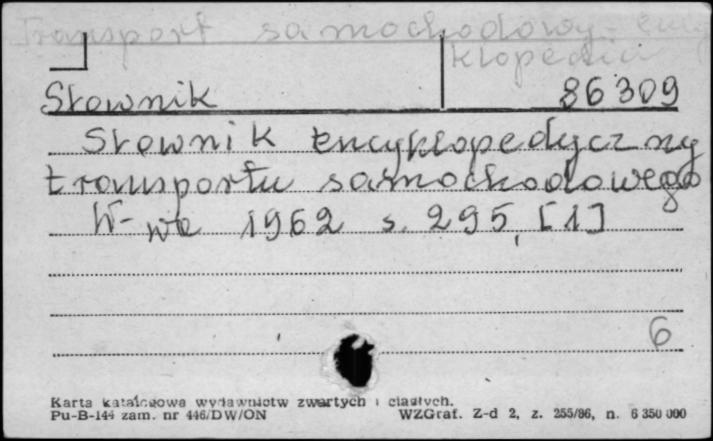 Transport samochodowy - ency
klopedia
Słownik 86309
Słownik encyklopedyczny
transportu samochodowego
W-wa 1962 s. 295, [1]
6
Karta katalogowa wydawnictw zwartych i ciągłych.
Pu-B-144 zam. nr 446/DW/ON WZGraf. Z-d 2, z. 255/86, n. 6 350 000